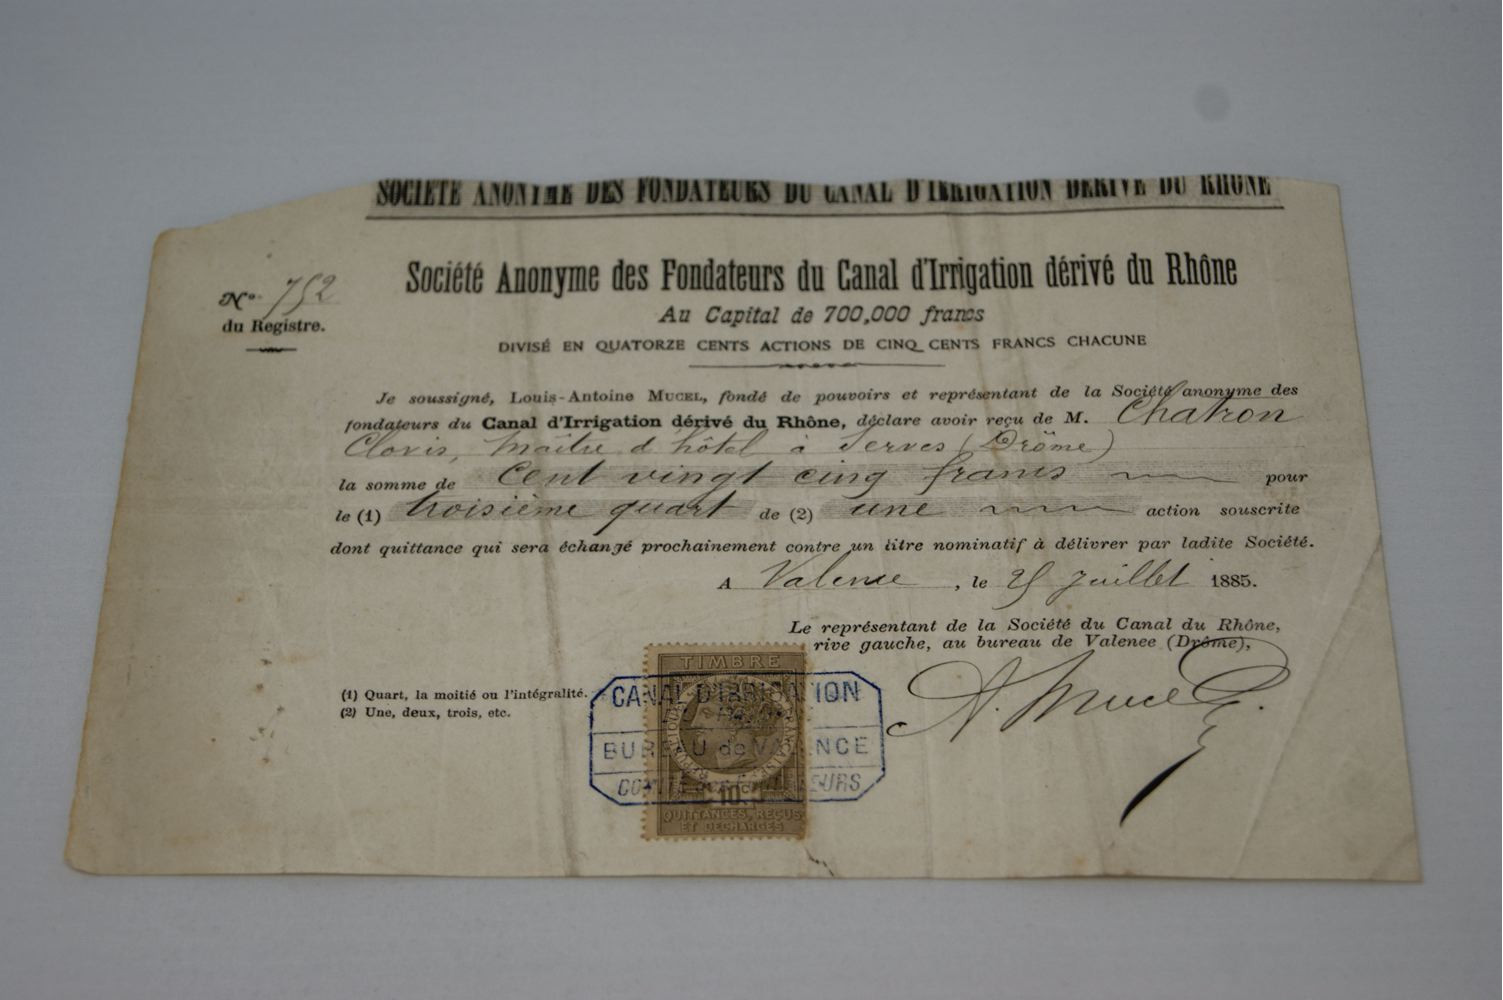 SOCIÉTÉ ANONYME DES FONDATEURS DU CANAL D'IRRIGATION DÉRIVÉ DU RHÔNE
Société Anonyme des Fondateurs du Canal d'Irrigation dérivé du Rhône
Nº 752
du Registre.
Au Capital de 700,000 francs
DIVISÉ EN QUATORZE CENTS ACTIONS DE CINQ CENTS FRANCS CHACUNE
Je soussigné, Louis-Antoine MUCEL, fondé de pouvoirs et représentant de la Société anonyme des
fondateurs du Canal d'Irrigation dérivé du Rhône, déclare avoir reçu de M. Chatron
Clovis, Maître d'hôtel à Serves (Drôme)
la somme de Cent vingt cinq francs pour
le (1) troisième quart de (2) une action souscrite
dont quittance qui sera échangé prochainement contre un titre nominatif à délivrer par ladite Société.
A Valence, le 25 Juillet 1885.
Le représentant de la Société du Canal du Rhône,
rive gauche, au bureau de Valenee (Drôme),
A. Mucel
(1) Quart, la moitié ou l'intégralité.
(2) Une, deux, trois, etc.
TIMBRE
CANAL D'IRRIGATION
BUREAU de VALENCE
10c
QUITTANCES, REÇUS
ET DÉCHARGES